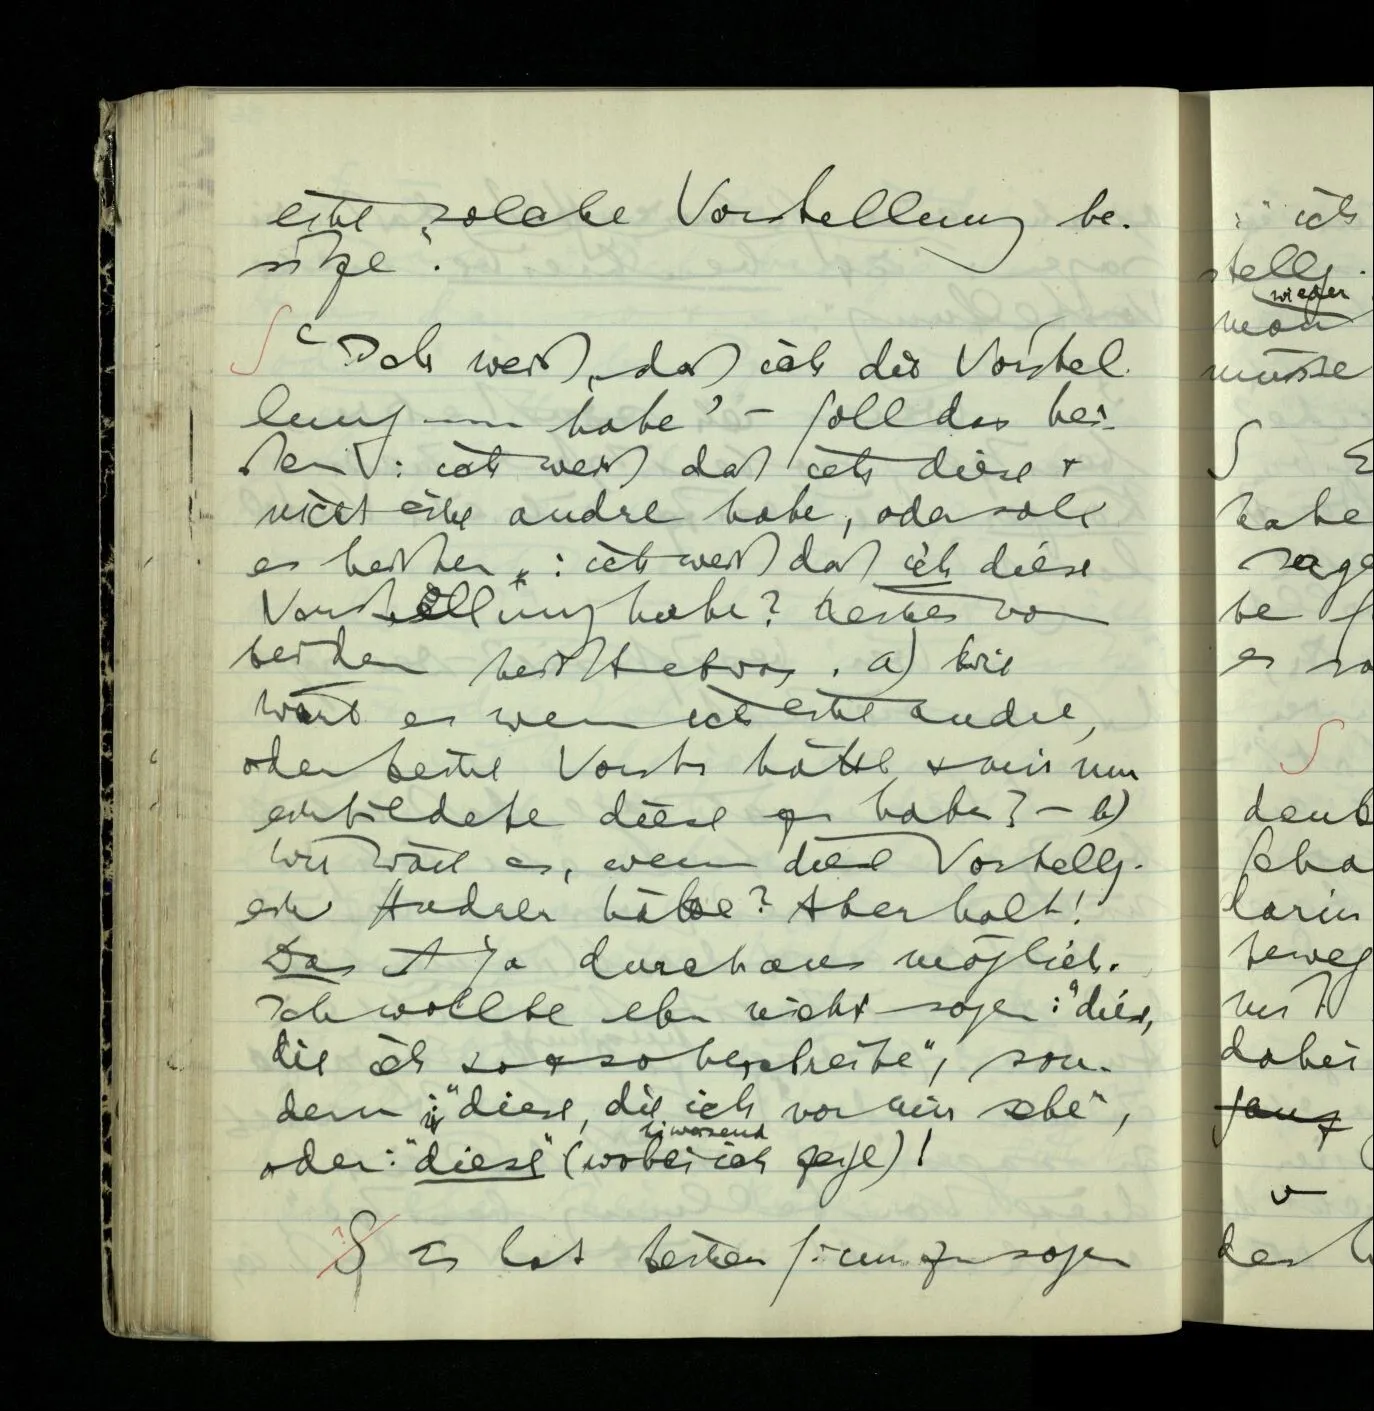 eine solche Vorstellung be-
sitze".
∫ "Ich weiß, daß ich die Vorstel-
lung habe" – soll das hei-
ßen: ich weiß daß ich diese +
nicht eine andre habe, oder soll
es heißen: ich weiß daß ich diese
Vorstellung habe? Keines von
beiden heißt etwas. a) Wie
wäre es wenn ich eine andre,
oder keine Vorst. hätte + mir nur
einbildete diese zu haben? – b)
wie wäre es, wenn diese Vorstellg.
ein Andrer hätte? Aber halt!
Das ist ja durchaus möglich.
Ich wollte eben nicht sagen: "diese,
die ich so + so beschreibe", son-
dern: "diese, die ich vor mir sehe",
hinweisend
oder: "diese" (wobei ich zeige)!
Es hat keinen Sinn zu sagen
ich
stellg.
wieder
man
müsse
∫
habe
sage
es
∫
denk
darin
beweg
dabei
ganz